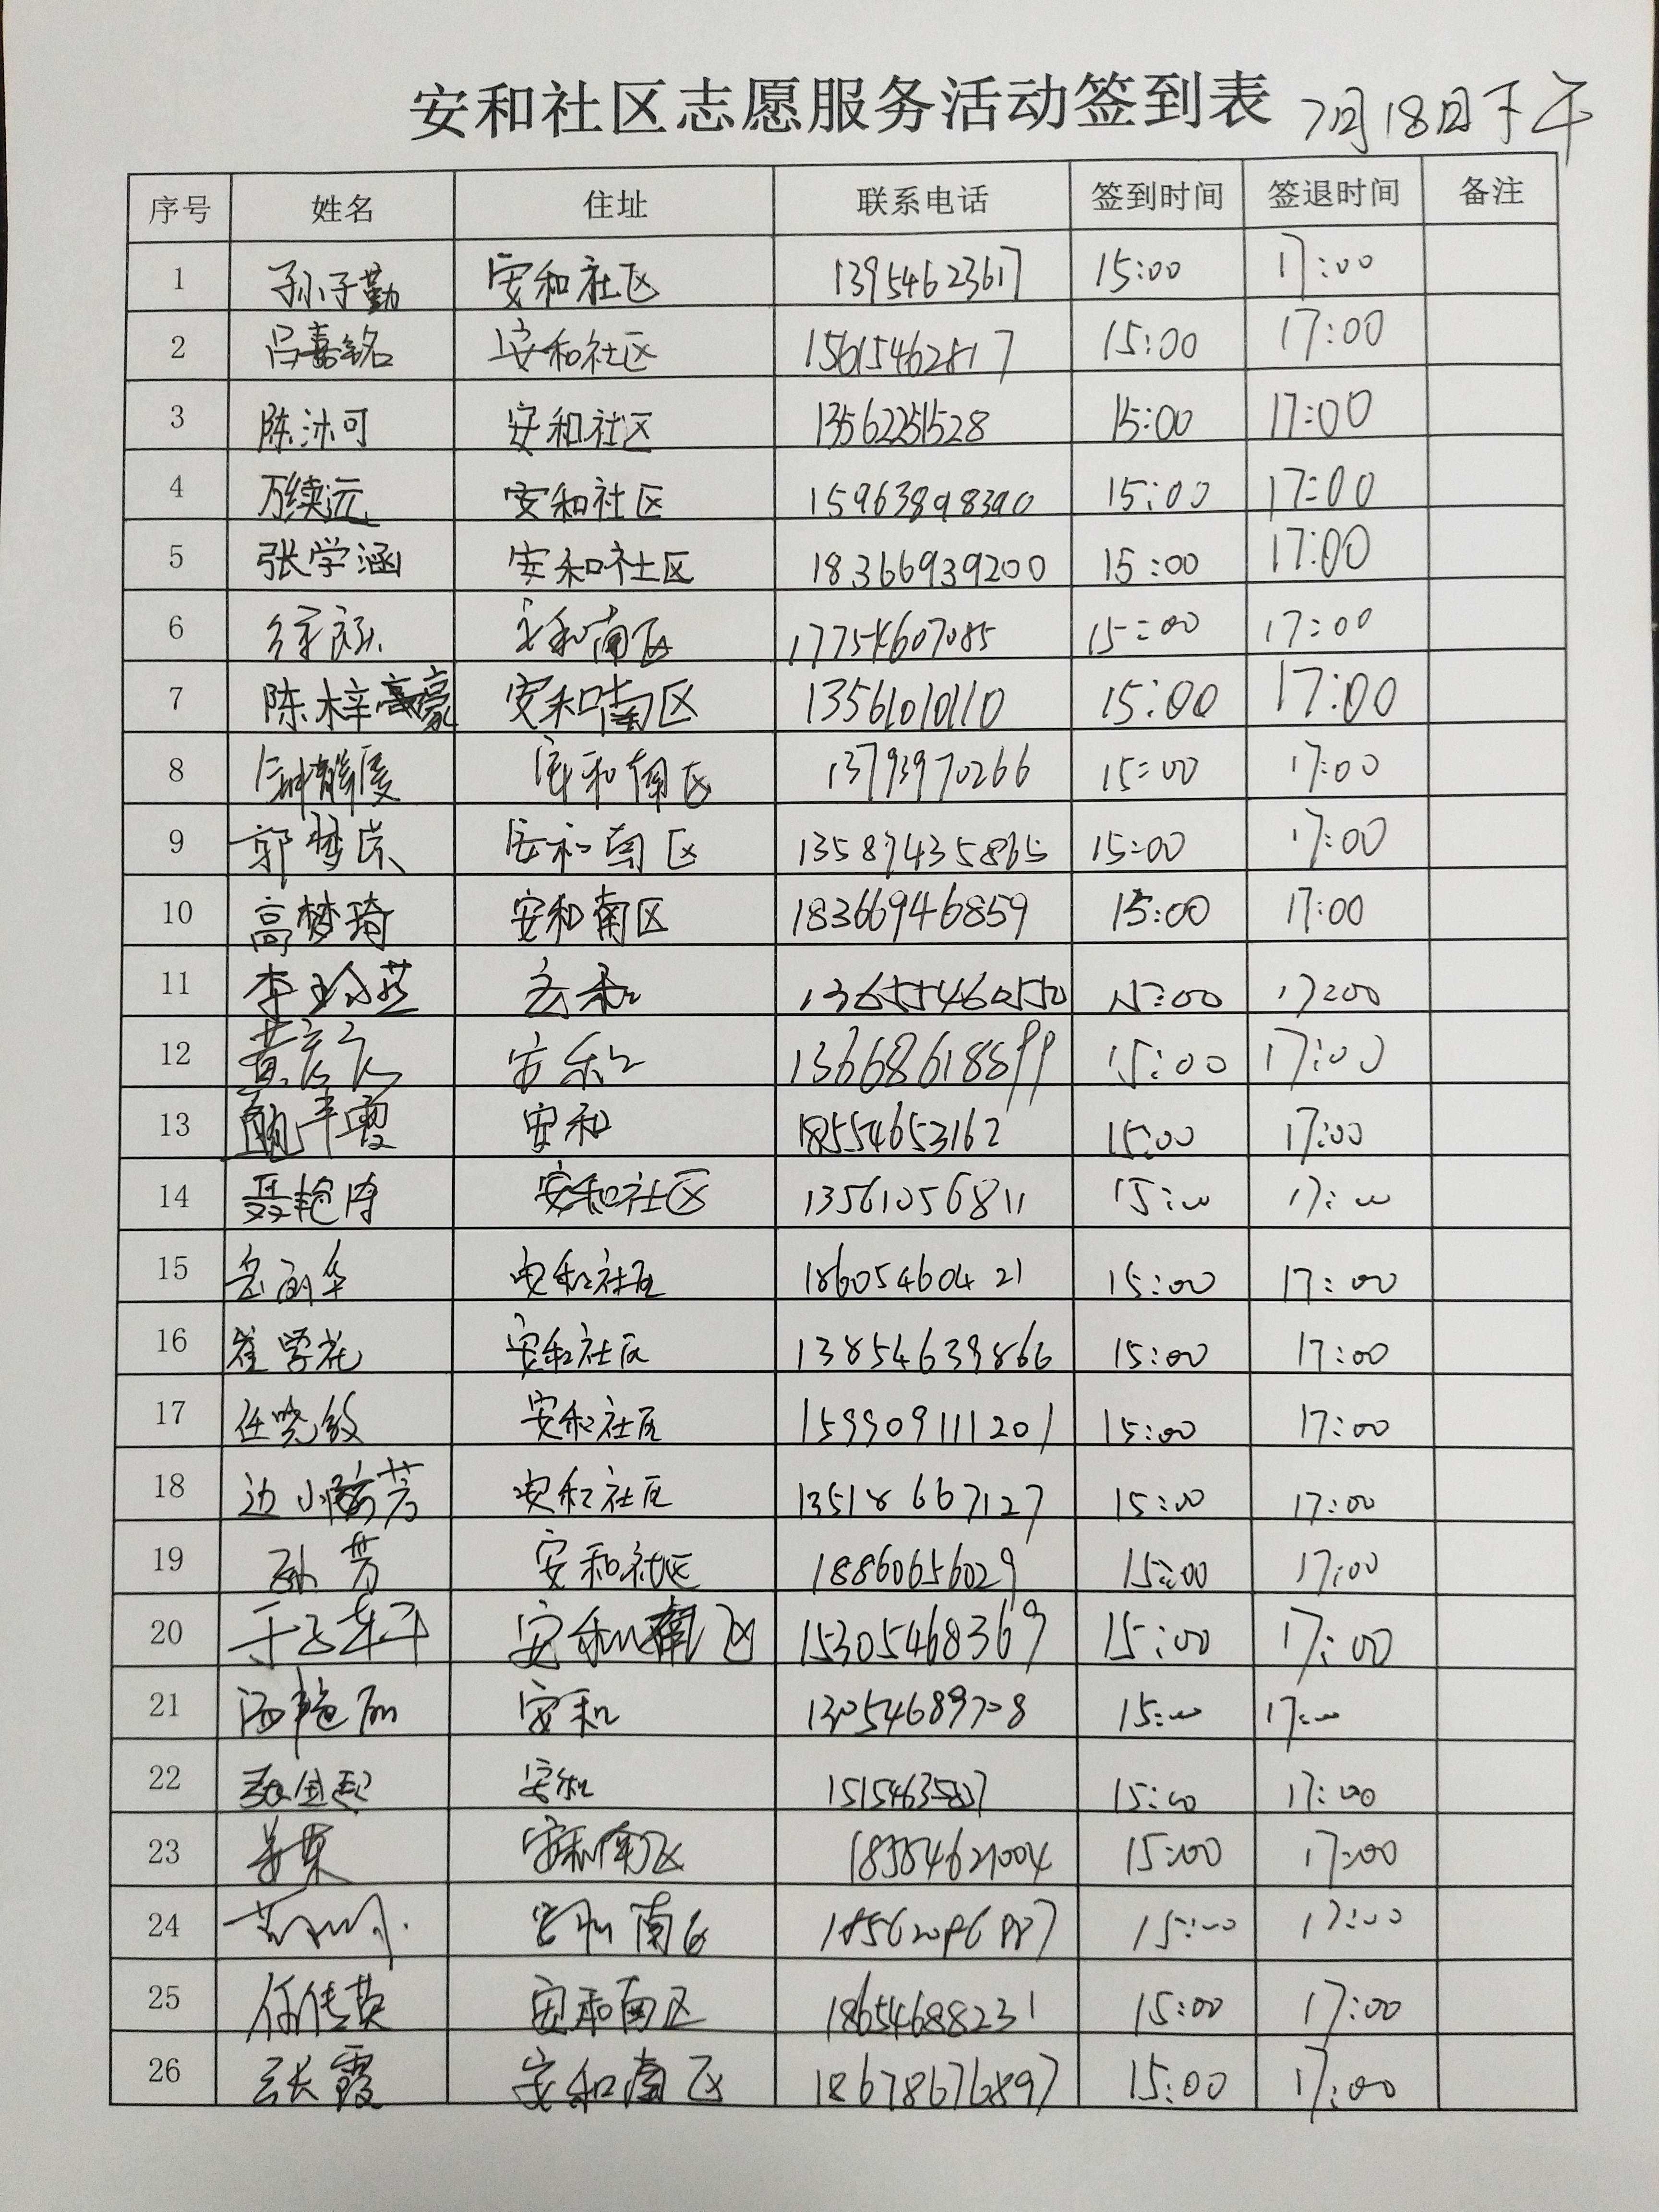 安和社区志愿服务活动签到表 7月18日下午
序号 姓名 住址 联系电话 签到时间 签退时间 备注
1 孙子勤 安和社区 13954623617 15:00 17:00
2 吕嘉铭 安和社区 15615462817 15:00 17:00
3 陈沐可 安和社区 13562251528 15:00 17:00
4 万续沅 安和社区 15963898390 15:00 17:00
5 张学涵 安和社区 18366939200 15:00 17:00
6 安和南区 17754607085 15:00 17:00
7 陈梓豪 安和南区 13561010110 15:00 17:00
8 安和南区 13793970266 15:00 17:00
9 郭梦 安和南区 15:00 17:00
10 高梦琦 安和南区 18366946859 15:00 17:00
11 李玲燕 安和 15:00 17:00
12 安和 13668618899 15:00 17:00
13 安和 18554653162 15:00 17:00
14 聂艳涛 安和社区 13561056811 15:00 17:00
15 安和社区 18605460421 15:00 17:00
16 崔学花 安和社区 13854639866 15:00 17:00
17 任晓敏 安和社区 159909111201 15:00 17:00
18 边小芳 安和社区 13518667127 15:00 17:00
19 孙芳 安和社区 18860656029 15:00 17:00
20 安和南区 15305468369 15:00 17:00
21 安和 13054689708 15:00 17:00
22 安和 15:00 17:00
23 安和南区 15:00 17:00
24 安和南区 15:00 17:00
25 任传英 安和南区 18654688231 15:00 17:00
26 张霞 安和南区 18678676897 15:00 17:00